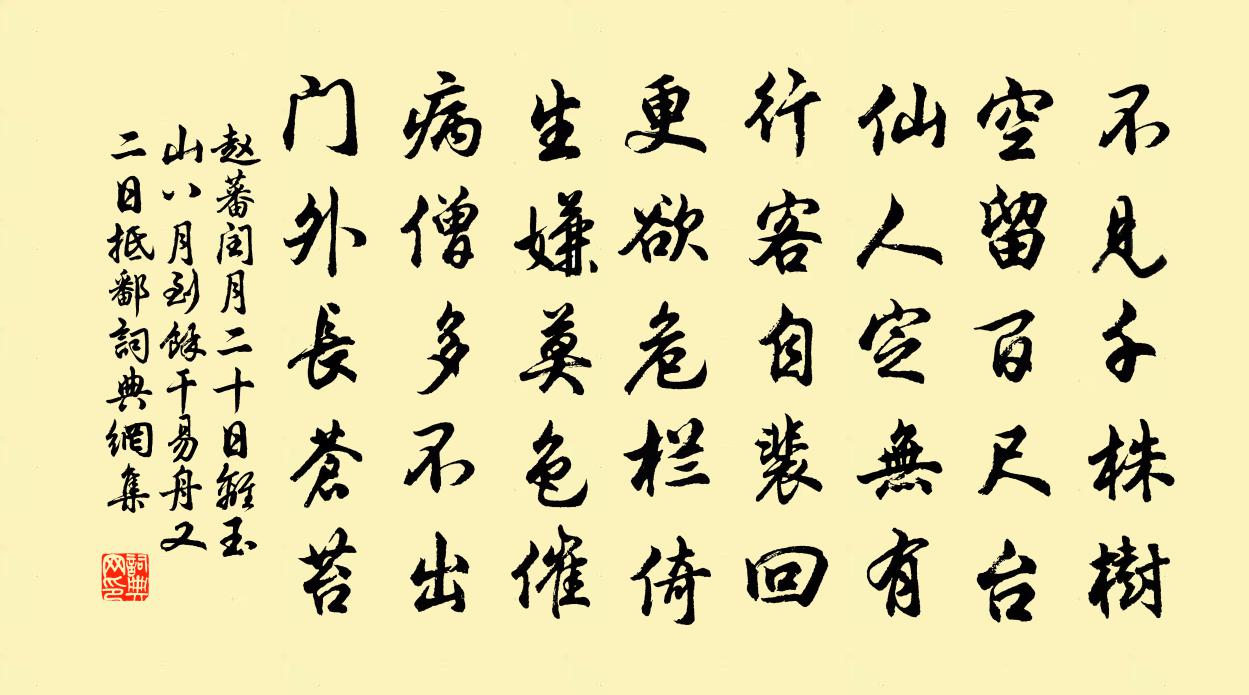 不見千株樹
空留百尺台
仙人定無有
行客自裴回
更欲危栏倚
生嫌莫色催
病僧多不出
门外長蒼苔
赵蕃闰月二十日離玉
山八月到餘干易舟又
二日抵鄱詞典網集
詞典
网印